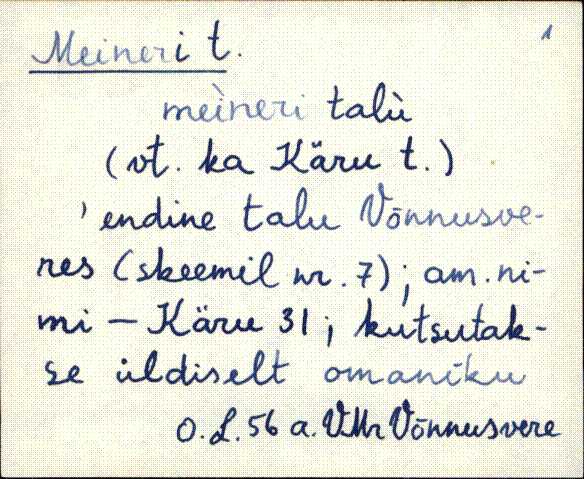 Meineri t. 1
mèineri talù
(vt. ka Käru t.)
' endine talu Võnnusve-
res (skeemil nr. 7); am. ni-
mi – Käru 31; kutsutak-
se üldiselt omaniku
O. L. 56 a. VMr Võnnusvere